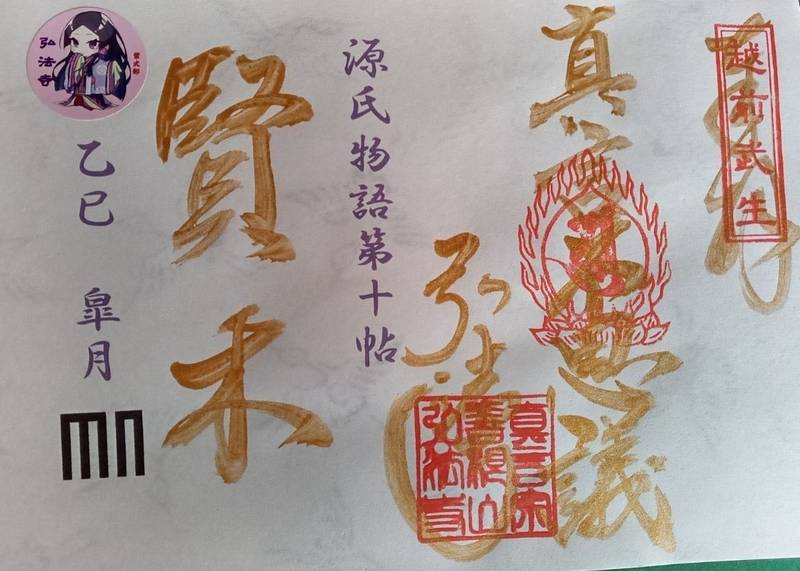 奉拝
越前武生
真言不思議
弘法寺
真言宗
菩提山
弘法寺
源氏物語第十帖
賢木
弘法寺
紫式部
乙巳 皐月